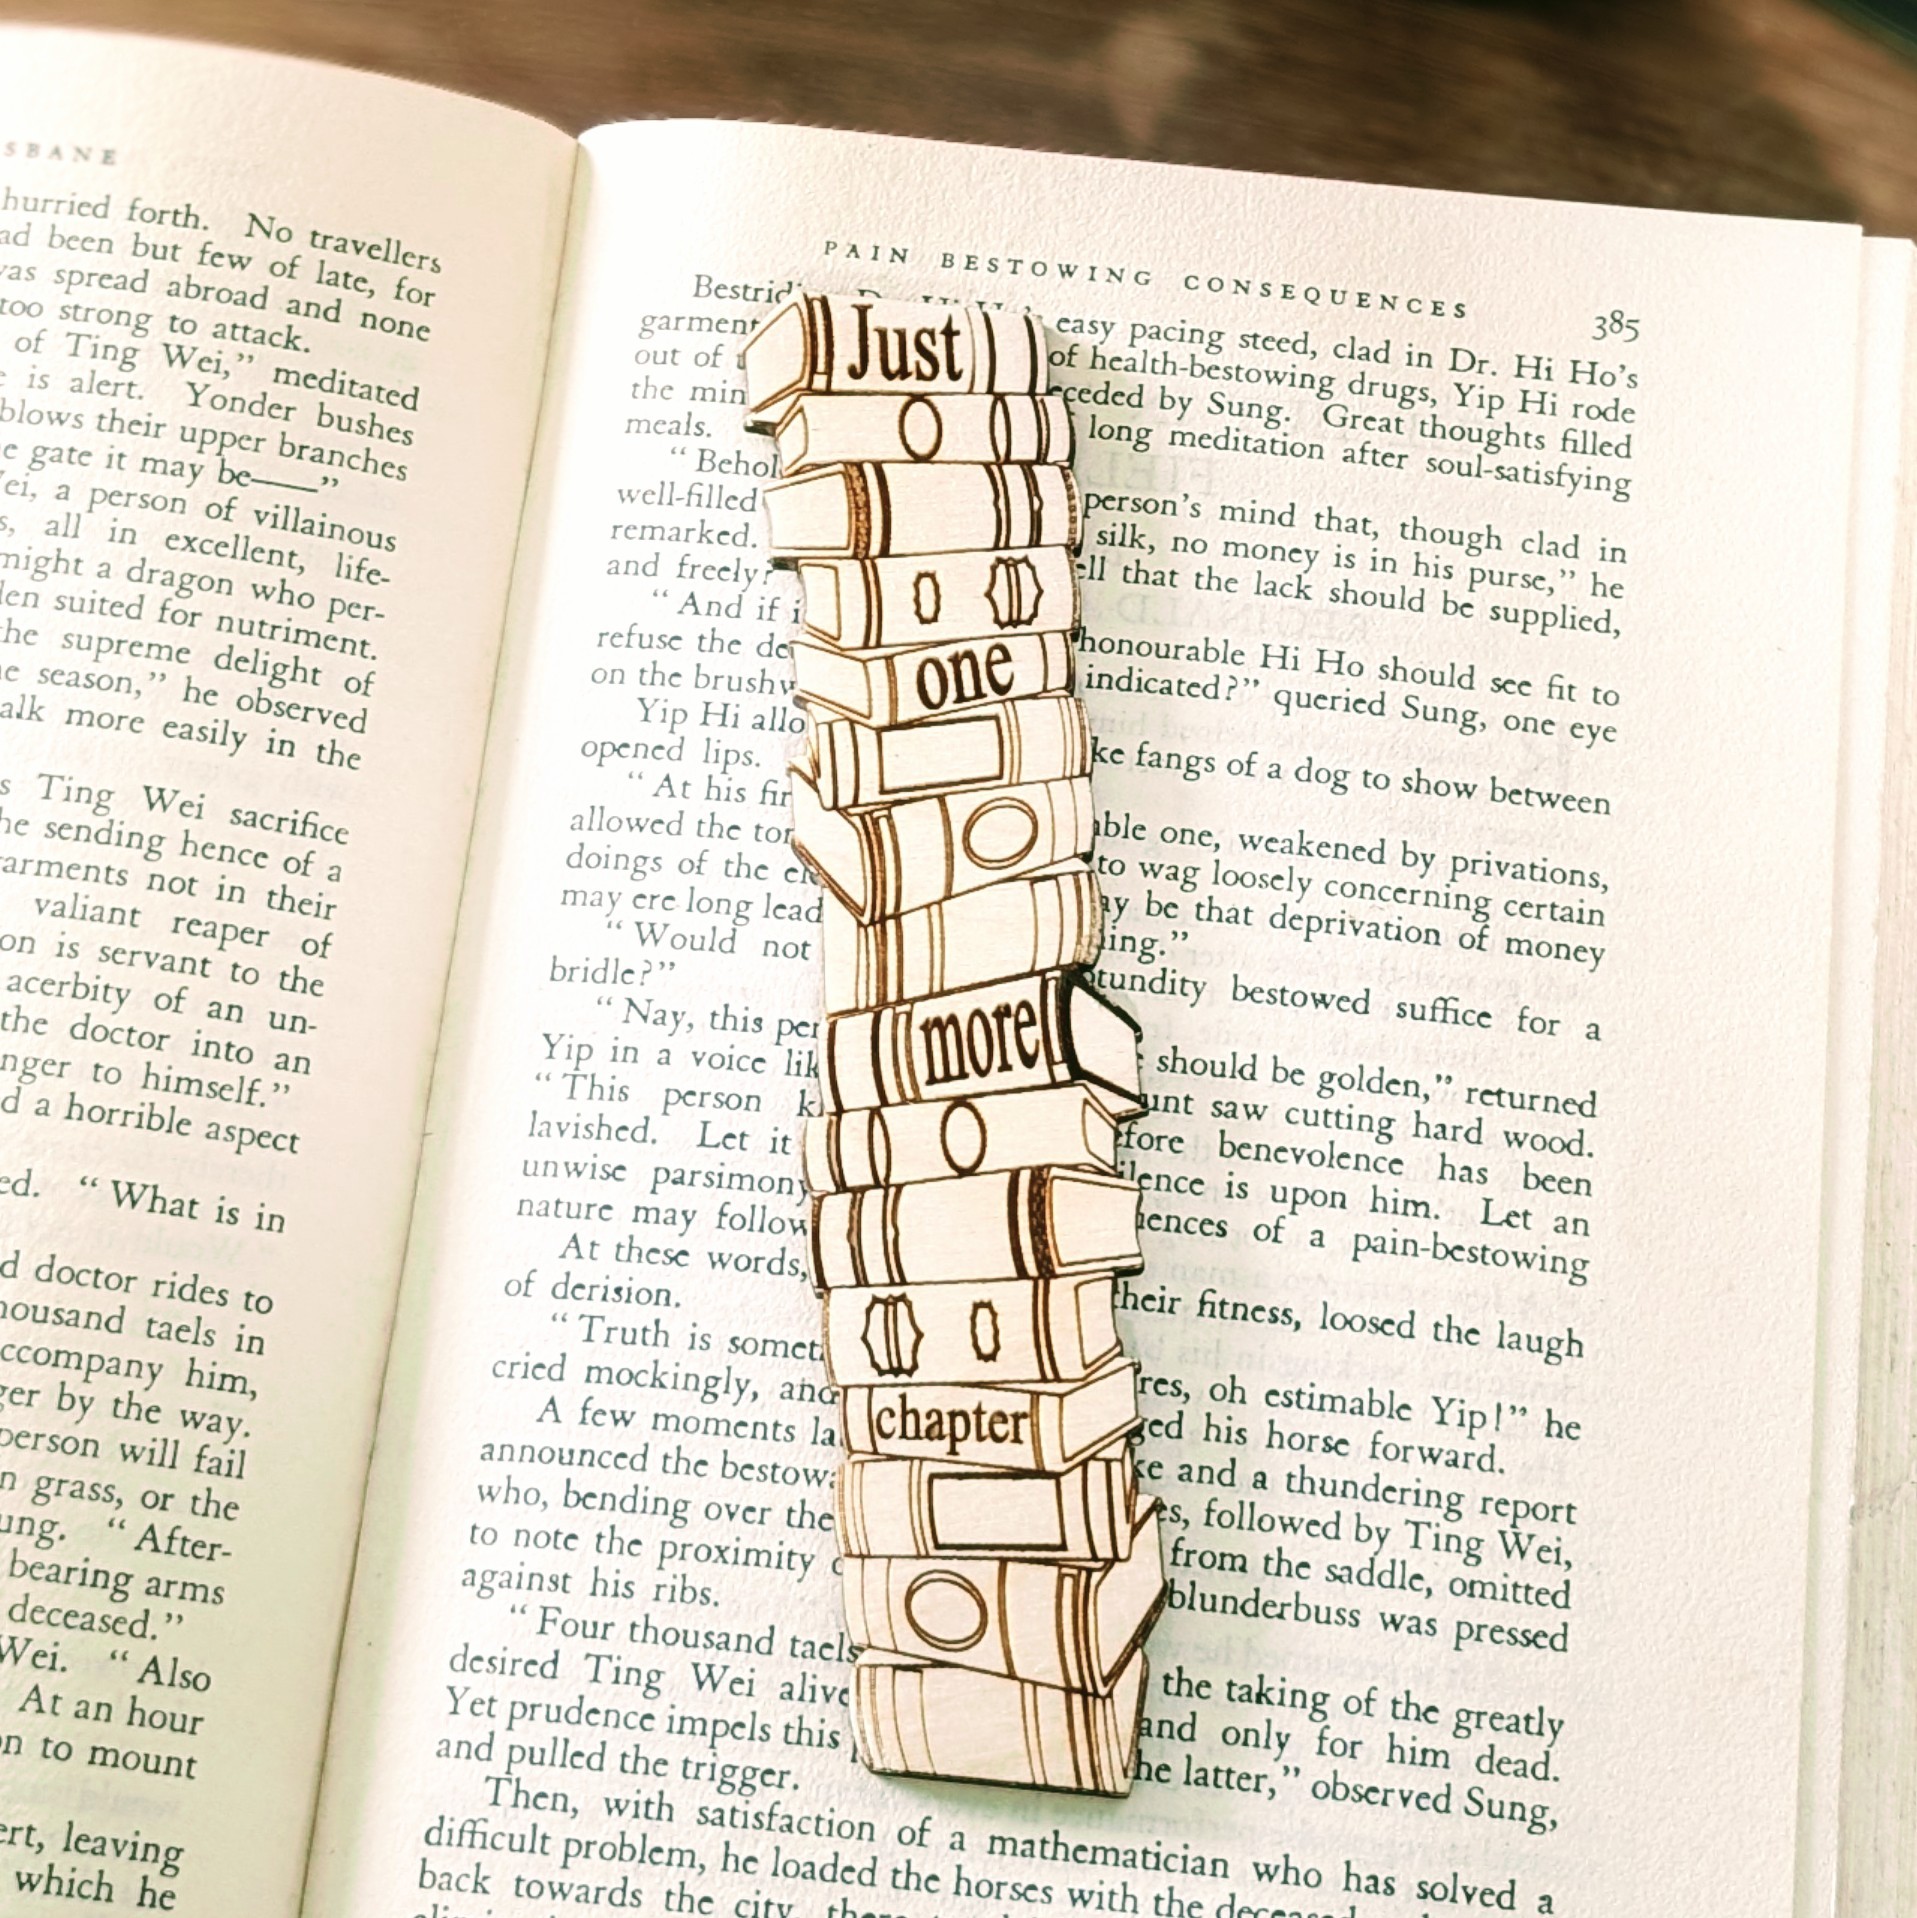 SBANE
hurried forth. No travellers
ad been but few of late, for
was spread abroad and none
too strong to attack.
of Ting Wei,” meditated
e is alert. Yonder bushes
blows their upper branches
e gate it may be——”
Wei, a person of villainous
s, all in excellent, life-
might a dragon who per-
den suited for nutriment.
he supreme delight of
he season,” he observed
alk more easily in the
s Ting Wei sacrifice
he sending hence of a
arments not in their
valiant reaper of
on is servant to the
acerbity of an un-
the doctor into an
nger to himself.”
d a horrible aspect
ed. “What is in
d doctor rides to
housand taels in
ccompany him,
ger by the way.
person will fail
n grass, or the
ung. “After-
bearing arms
deceased.”
Wei. “Also
At an hour
on to mount
ert, leaving
which he
PAIN BESTOWING CONSEQUENCES 385
easy pacing steed, clad in Dr. Hi Ho’s
garment of health-bestowing drugs, Yip Hi rode
out of ceded by Sung. Great thoughts filled
the min long meditation after soul-satisfying
meals.
“Behol person’s mind that, though clad in
well-filled silk, no money is in his purse,” he
remarked. ell that the lack should be supplied,
and freely?
“And if i honourable Hi Ho should see fit to
refuse the de indicated?” queried Sung, one eye
on the brushw
Yip Hi allo ke fangs of a dog to show between
opened lips.
“At his fir able one, weakened by privations,
allowed the ton to wag loosely concerning certain
doings of the el ay be that deprivation of money
may ere long lead ing.”
“Would not otundity bestowed suffice for a
bridle?”
“Nay, this per should be golden,” returned
Yip in a voice lik unt saw cutting hard wood.
“This person k fore benevolence has been
lavished. Let it ilence is upon him. Let an
unwise parsimony uences of a pain-bestowing
nature may follow
At these words, their fitness, loosed the laugh
of derision.
“Truth is somet res, oh estimable Yip!” he
cried mockingly, and ged his horse forward.
A few moments la ke and a thundering report
announced the bestowa es, followed by Ting Wei,
who, bending over the from the saddle, omitted
to note the proximity blunderbuss was pressed
against his ribs.
“Four thousand taels the taking of the greatly
desired Ting Wei alive and only for him dead.
Yet prudence impels this he latter,” observed Sung,
and pulled the trigger.
Then, with satisfaction of a mathematician who has solved a
difficult problem, he loaded the horses with the deceased
back towards the city,
Just
one
more
chapter